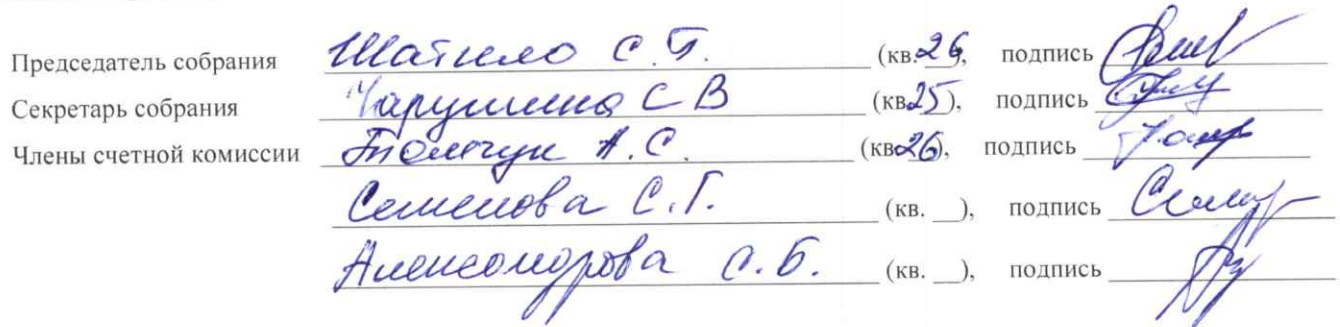 Председатель собрания Шатило С.Г. (кв. 26), подпись
Секретарь собрания Чарушина С В (кв. 25), подпись
Члены счетной комиссии А.С. (кв. 26), подпись
Семенова С.Г. (кв. __), подпись
Александрова С.Б. (кв. __), подпись